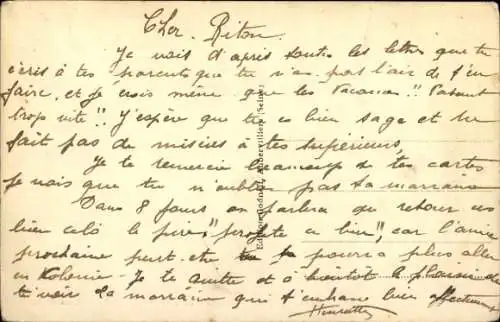 Cher Riton.
Je vois d'après toutes les lettres que tu
écris à tes parents que tu n'as pas l'air de t'en
faire, et je crois même que les Vacances!! Passent
trop vite!! J'espère que tu es bien sage et tu
fait pas de misères à tes supérieurs,
Je te remercie beaucoup de tes cartes
je vois que tu n'oublies pas ta marraine
Dans 8 jours on parlera du retour
bien celà le pire, "profite bien", car l'année
prochaine peut-etre pourra plus aller
en Kolonie - Je te quitte et à bientôt le plaisir de
te voir ta marraine qui t'embrasse bien affectueusement
Henriette
Aubervilliers (Seine)